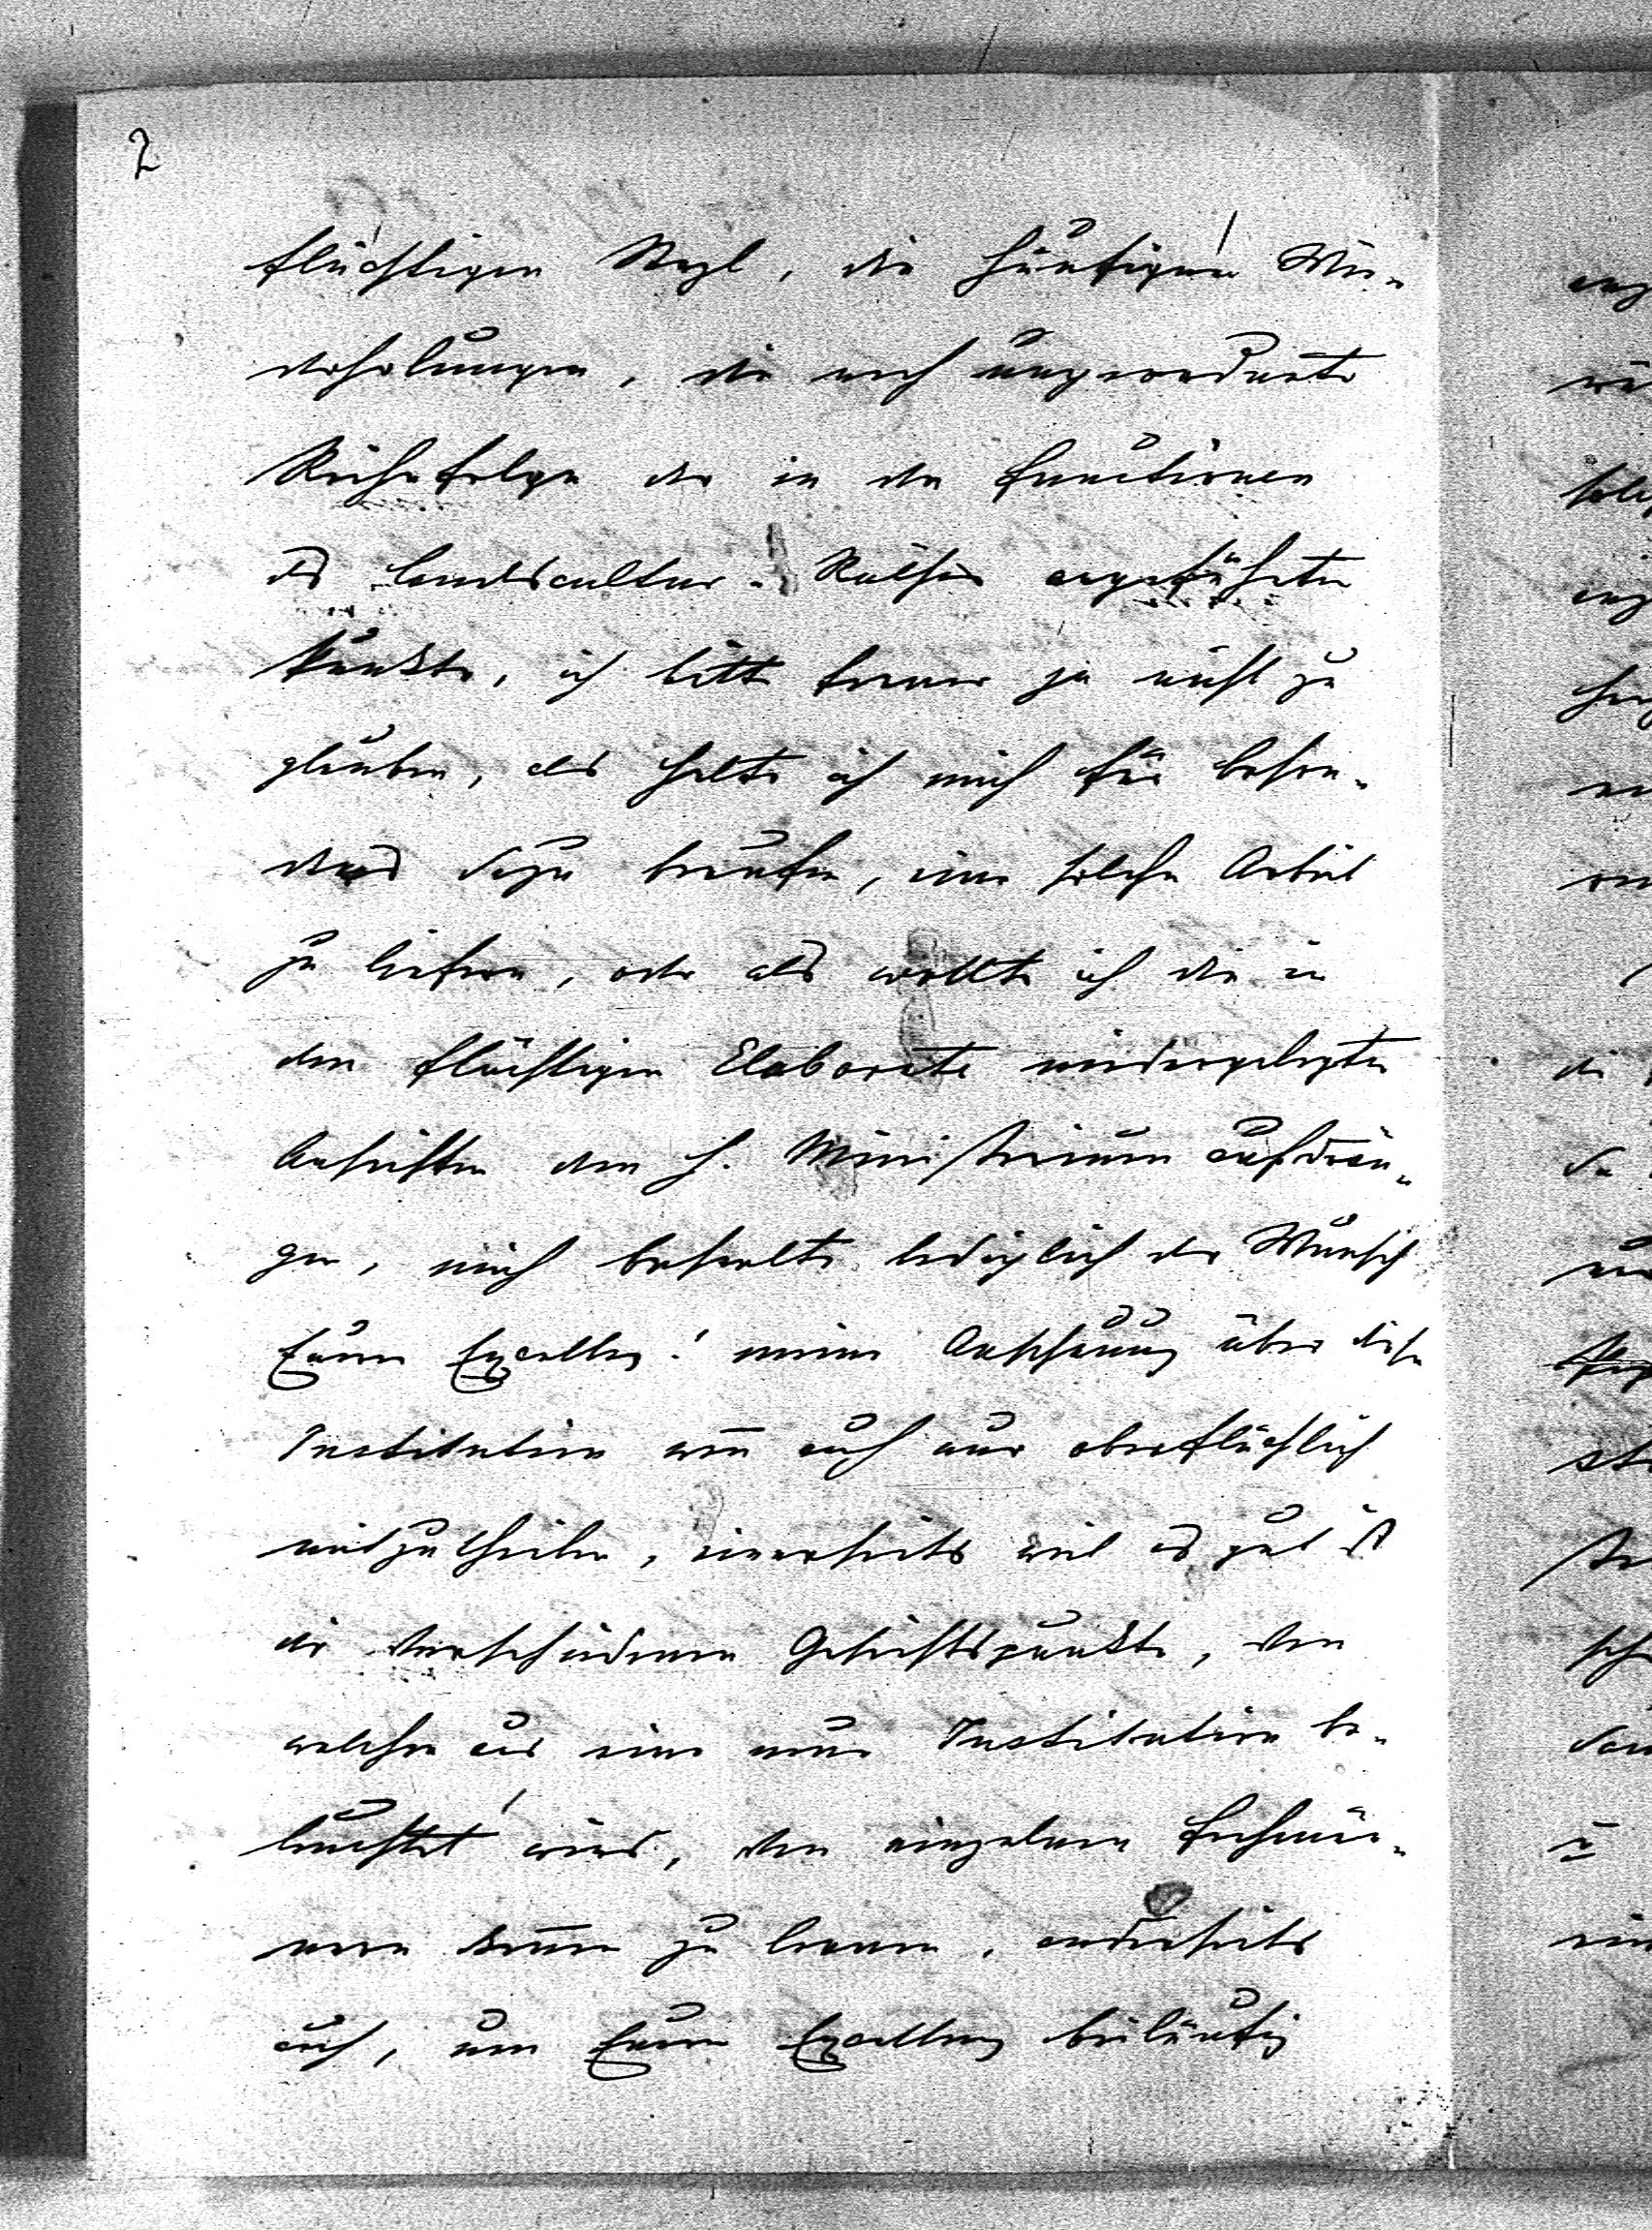 2
flüchtigen Styl, die häufigen Wie-
derholungen, die noch ungeordnete
Reihenfolge der in den Functionen
des Landescultur-Rathes angeführten
Punkte, ich bitte ferner ja nicht zu
glauben, als halte ich mich für beson-
ders dazu berufen, eine solche Arbeit
zu liefern, oder als wollte ich die in
dem flüchtigen Elaborate niedergelegten
Ansichten dem h. Ministerium aufdrän-
gen, mich beseelte lediglich der Wunsch
Euer Excellenz! meine Anschauung über diese
Institution wenn auch nur oberflächlich
mitzutheilen, einerseits weil es gut ist
die verschiedenen Gesichtspunkte, von
welchen aus eine neue Institution be-
leuchtet wird, von einzelnen Fachmän-
nern kennen zu lernen, anderseits
auch, um Euer Excellenz beiläufig